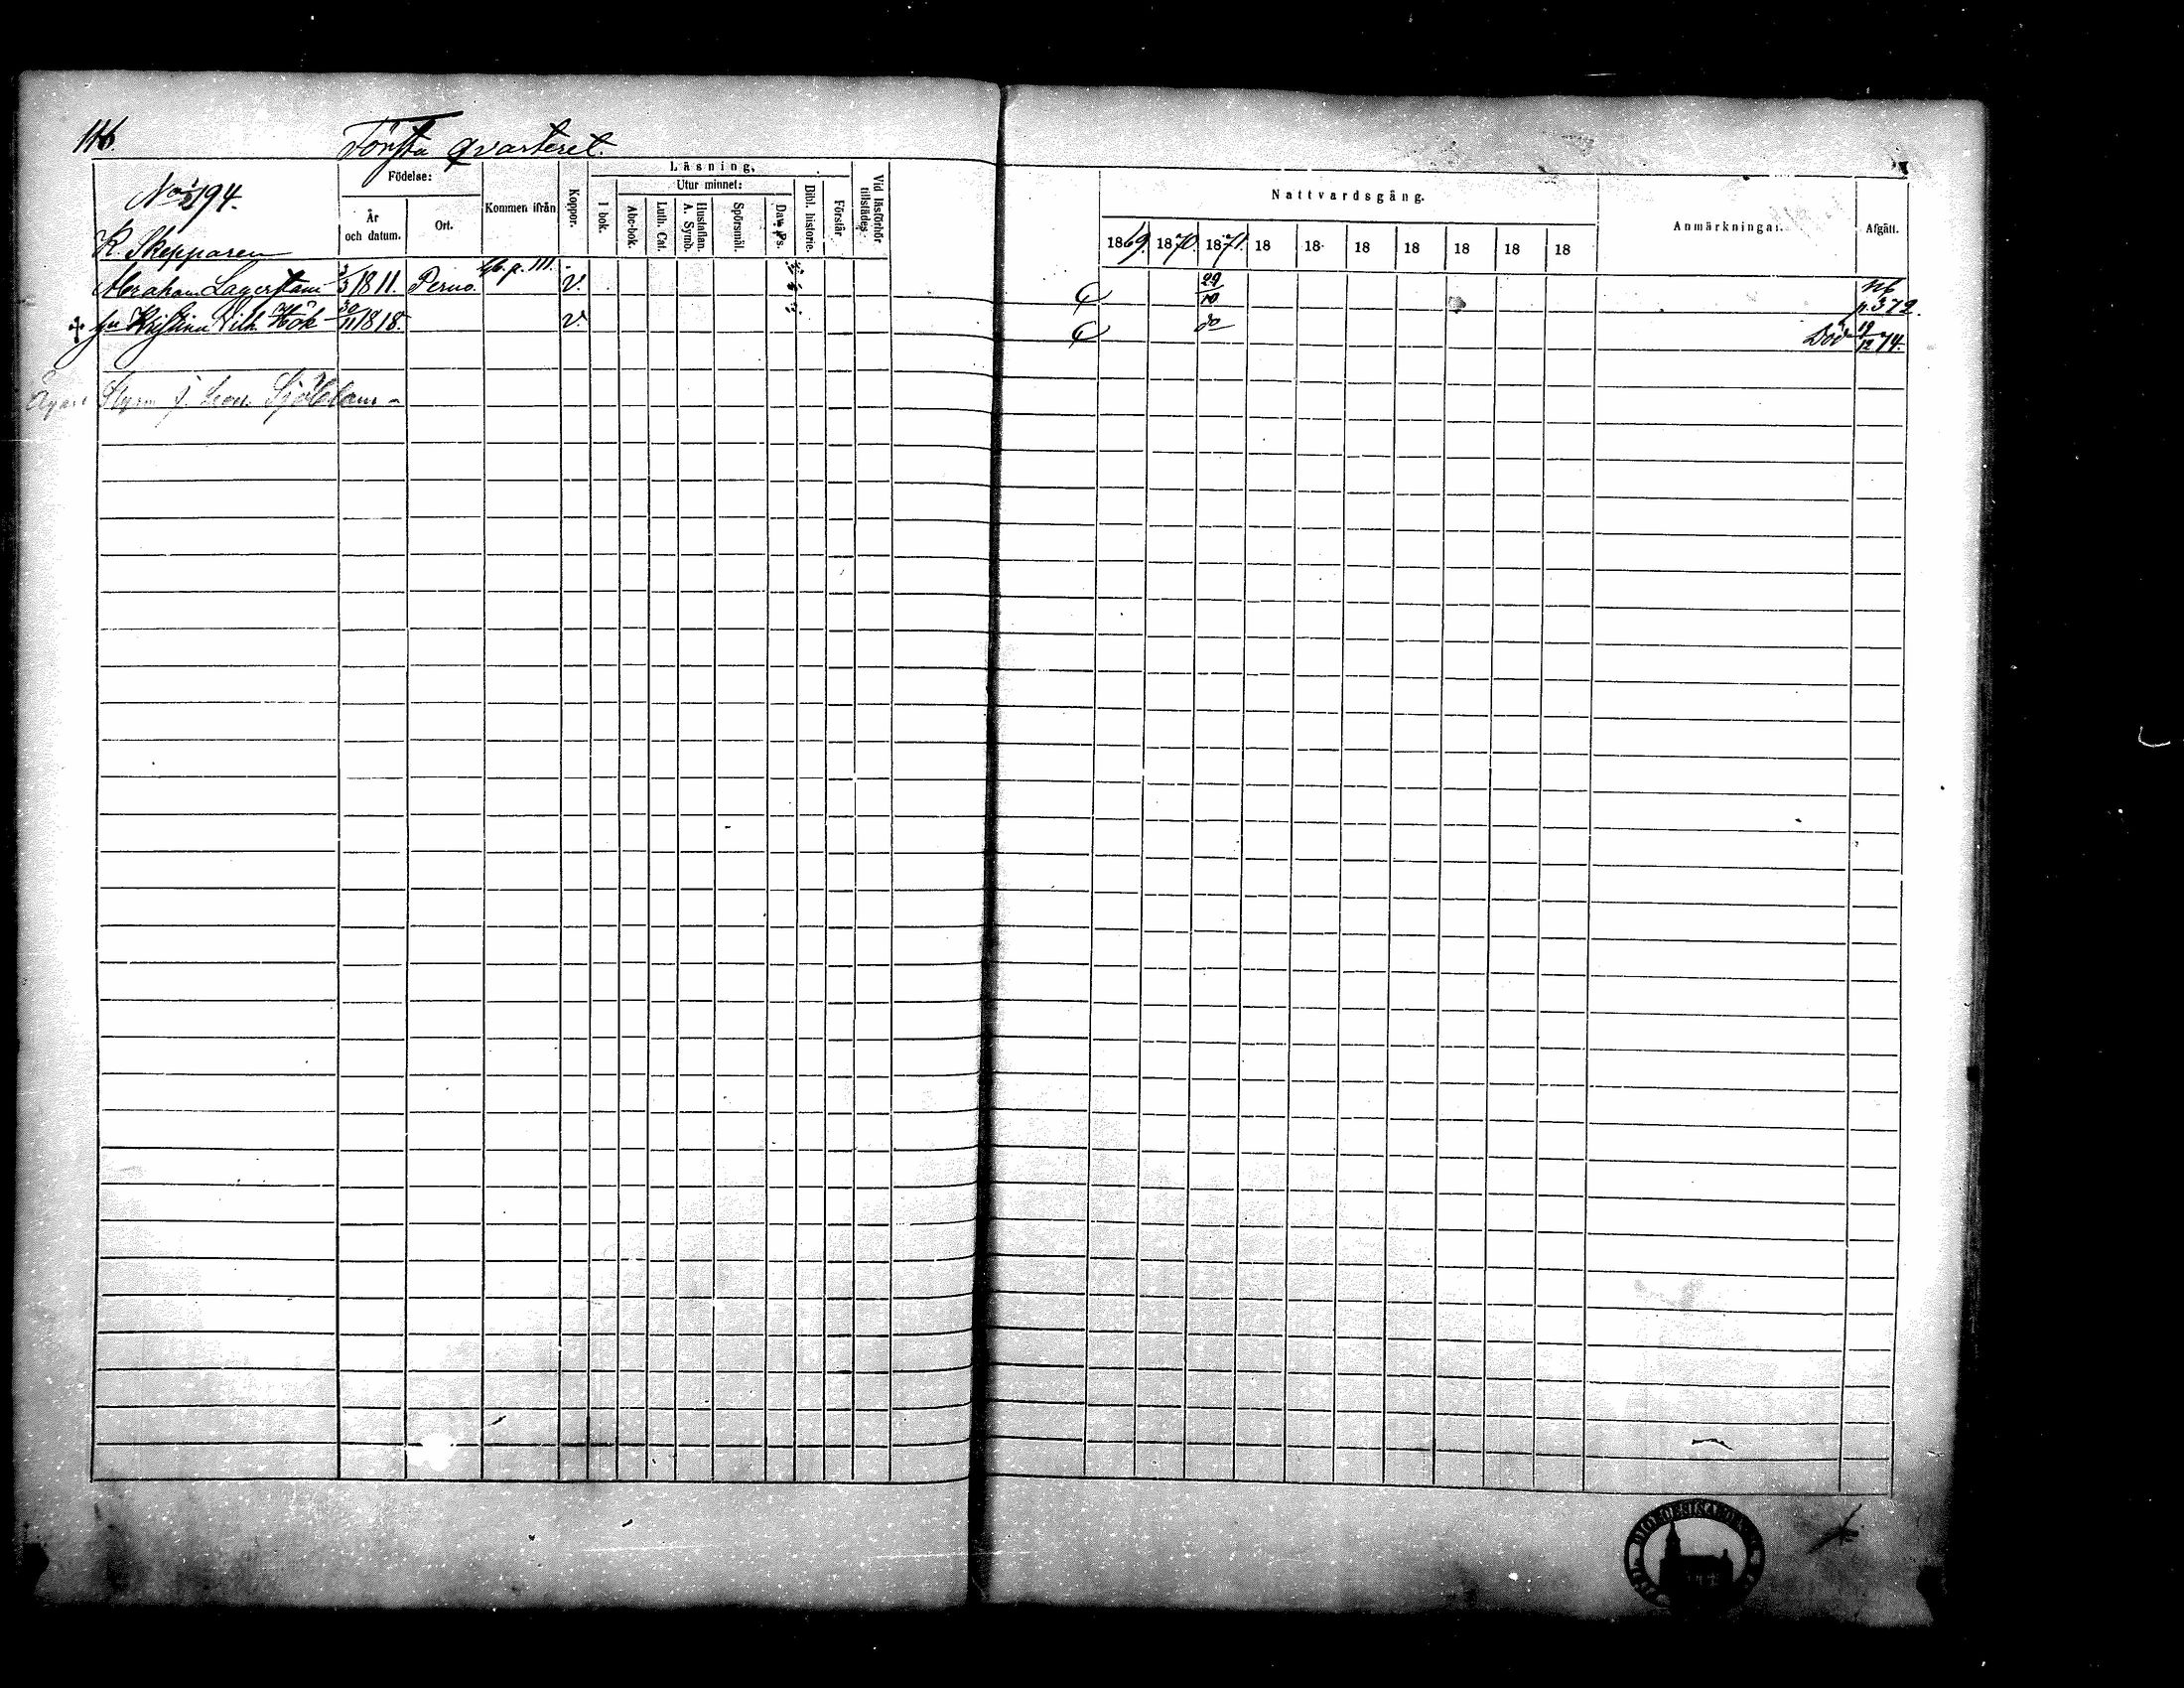 116.
Första qvarteret.
No 194.
Födelse:
År och datum.
Ort.
Kommen ifrån
Koppor.
Läsning.
I bok.
Utur minnet:
Abc-bok.
Luth. Cat.
Hustaflan. A. Symb.
Spörsmål.
Dav. Ps.
Bibl. historie.
Förstår
Vid läsförhör tillstädes:
Nattvardsgång.
1869. 1870. 1871. 18 18 18 18 18 18 18
Anmärkningar.
Afgått.
K. Skepparen
Abraham Lagerstam 3/3 1811. Perno. p. 111. v. 29/10 p. 372.
Kristina Vilh. Hök 30/11 1818. v. do Död 19/12 74.
Ägare Styrm J. Sjöblom